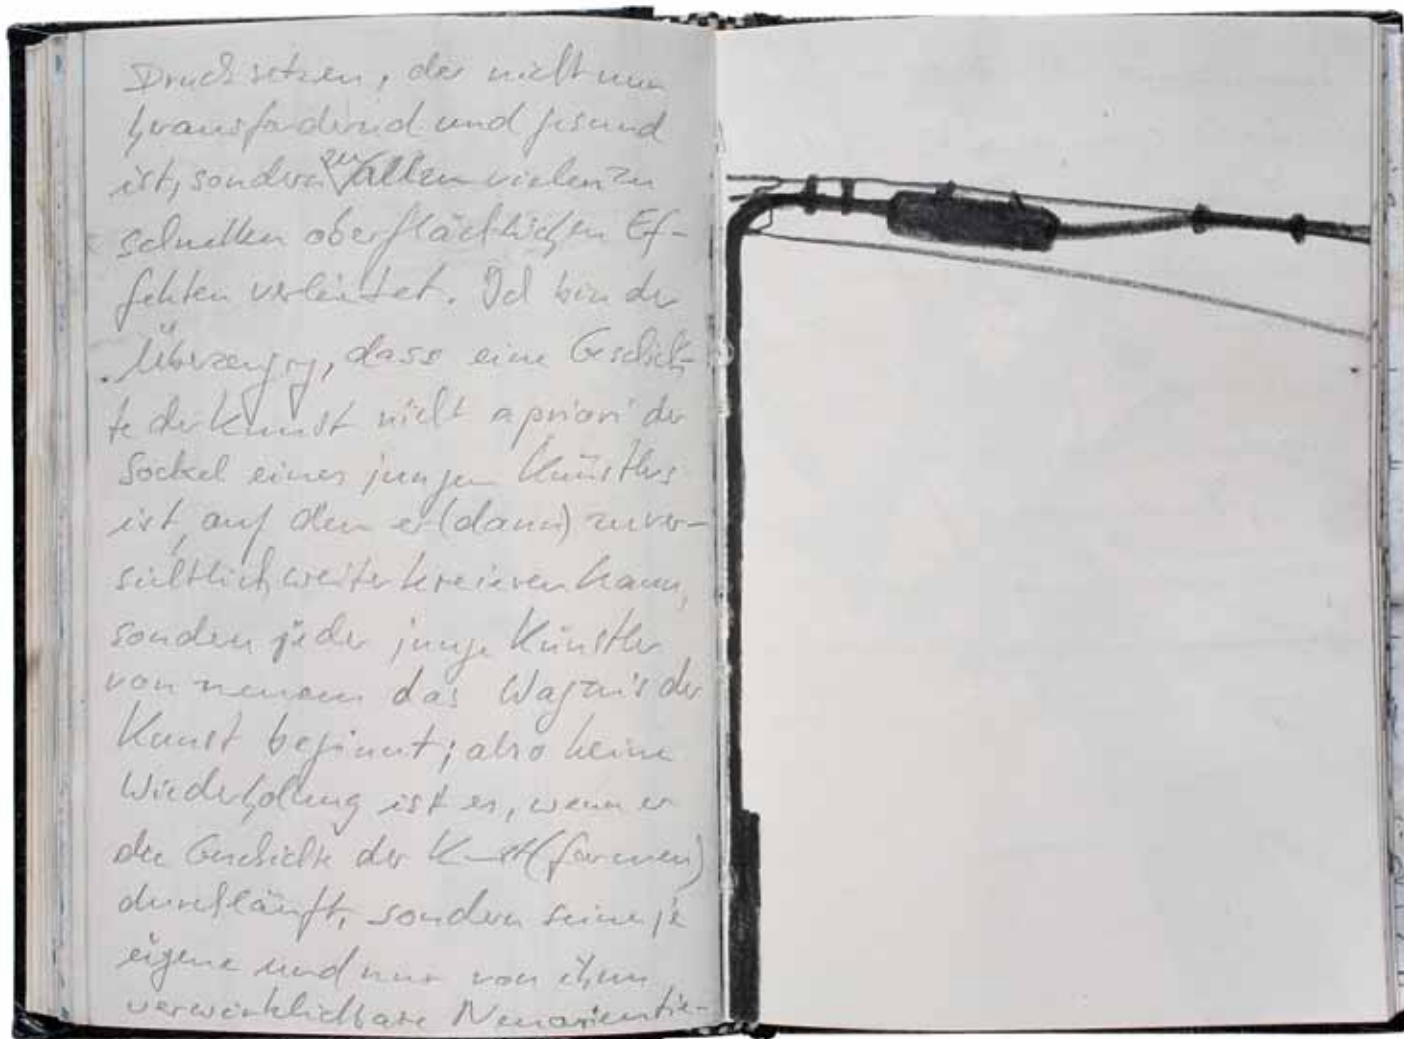 Druck setzen, der nicht nur
herausfordernd und gesund
ist, sondern zu allen vielen zu
schnellen oberflächlichen Ef-
fekten verleitet. Ich bin der
Überzeugung, dass eine Geschich-
te der Kunst nicht a priori der
Sockel eines jungen Künstlers
ist, auf dem er (dann) zuver-
sichtlich weiter kreieren kann,
sondern jeder junge Künstler
von neuem das Wagnis der
Kunst beginnt; also keine
Wiederholung ist es, wenn er
die Geschichte der Kunst(formen)
durchläuft, sondern seine je
eigene und nur von ihm
verwirklichbare Neuorientie-